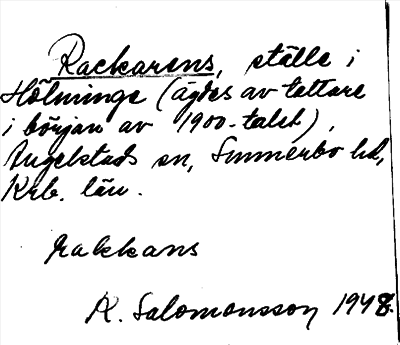 Rackarens, ställe i
Hölminge (ägdes av tattare
i början av 1900-talet),
Angelstads sn, Sunnerbo hd,
Krb. län.
rakkans
K. Salomonsson 1948.